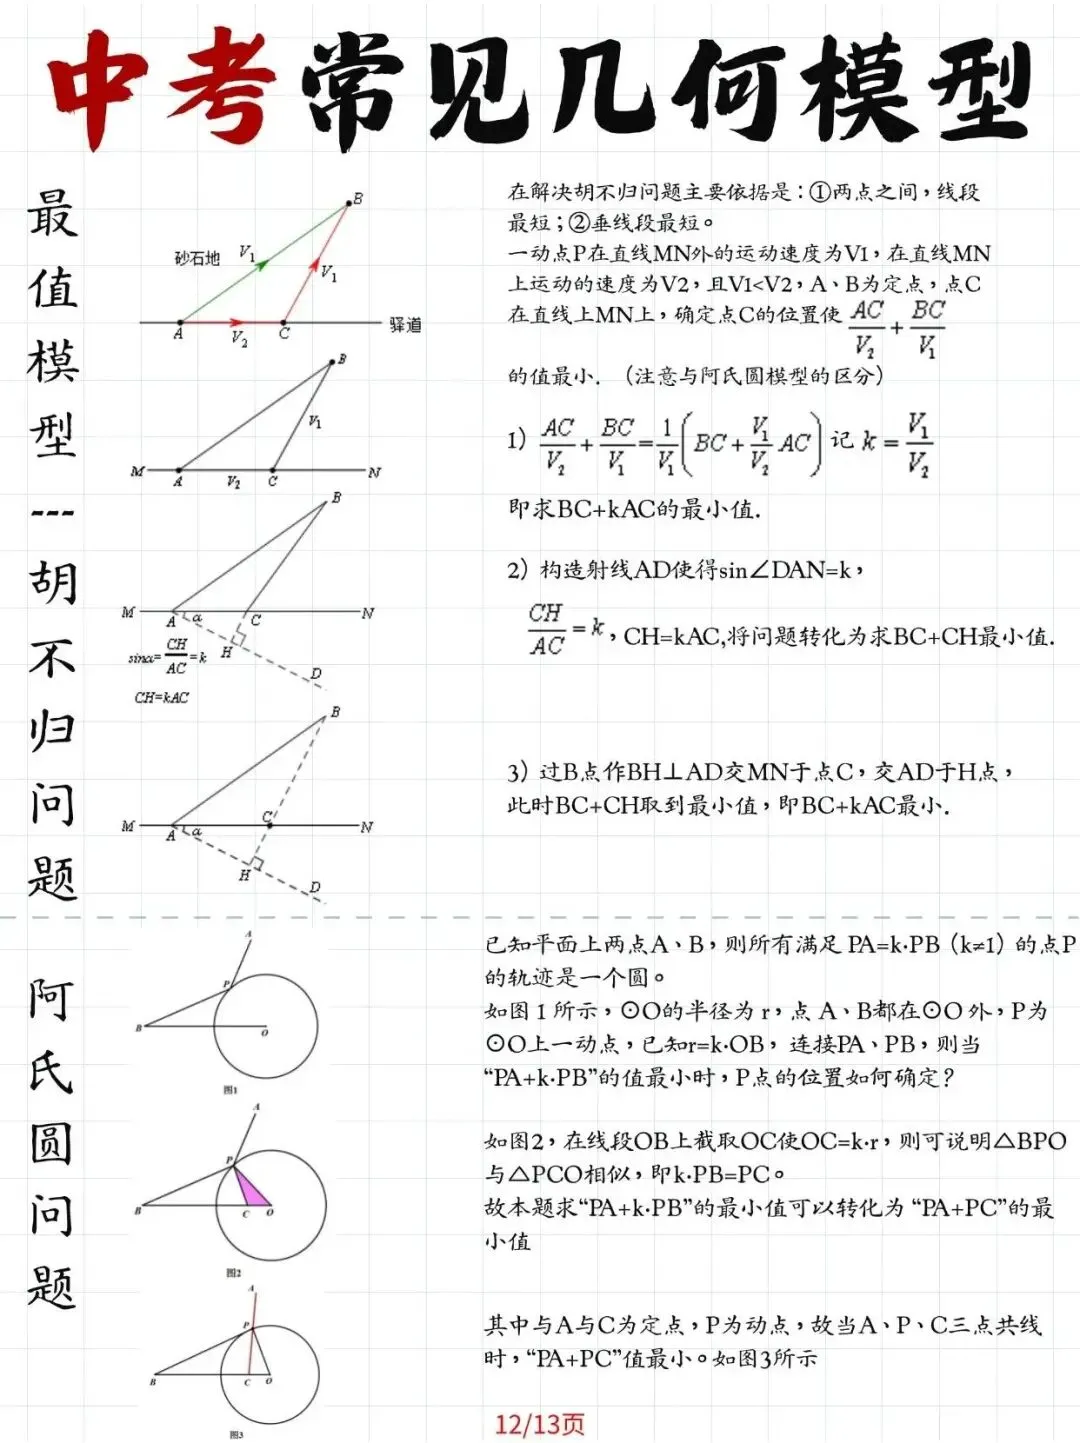 中考常见几何模型
最值模型---胡不归问题
B
砂石地 V₁
V₁
A V₂ C 驿道
B
V₁
M A V₂ C N
B
M A α C N
sinα=CH/AC=k H D
CH=kAC
B
M A α C N
H D
在解决胡不归问题主要依据是：①两点之间，线段
最短；②垂线段最短。
一动点P在直线MN外的运动速度为V1，在直线MN
上运动的速度为V2，且V1<V2，A、B为定点，点C
在直线上MN上，确定点C的位置使 AC/V₂+BC/V₁
的值最小.（注意与阿氏圆模型的区分）
1) AC/V₂+BC/V₁=1/V₁(BC+V₁/V₂ AC) 记 k=V₁/V₂
即求BC+kAC的最小值.
2) 构造射线AD使得sin∠DAN=k，
CH/AC=k，CH=kAC,将问题转化为求BC+CH最小值.
3) 过B点作BH⊥AD交MN于点C，交AD于H点，
此时BC+CH取到最小值，即BC+kAC最小.
阿氏圆问题
A
P
B O
图1
A
P
B C O
图2
A
P
B C O
图3
已知平面上两点A、B，则所有满足 PA=k·PB（k≠1）的点P
的轨迹是一个圆。
如图 1 所示，⊙O的半径为 r，点 A、B都在⊙O 外，P为
⊙O上一动点，已知r=k·OB， 连接PA、PB，则当
“PA+k·PB”的值最小时，P点的位置如何确定？
如图2，在线段OB上截取OC使OC=k·r，则可说明△BPO
与△PCO相似，即k·PB=PC。
故本题求“PA+k·PB”的最小值可以转化为 “PA+PC”的最
小值
其中与A与C为定点，P为动点，故当A、P、C三点共线
时，“PA+PC”值最小。如图3所示
12/13页